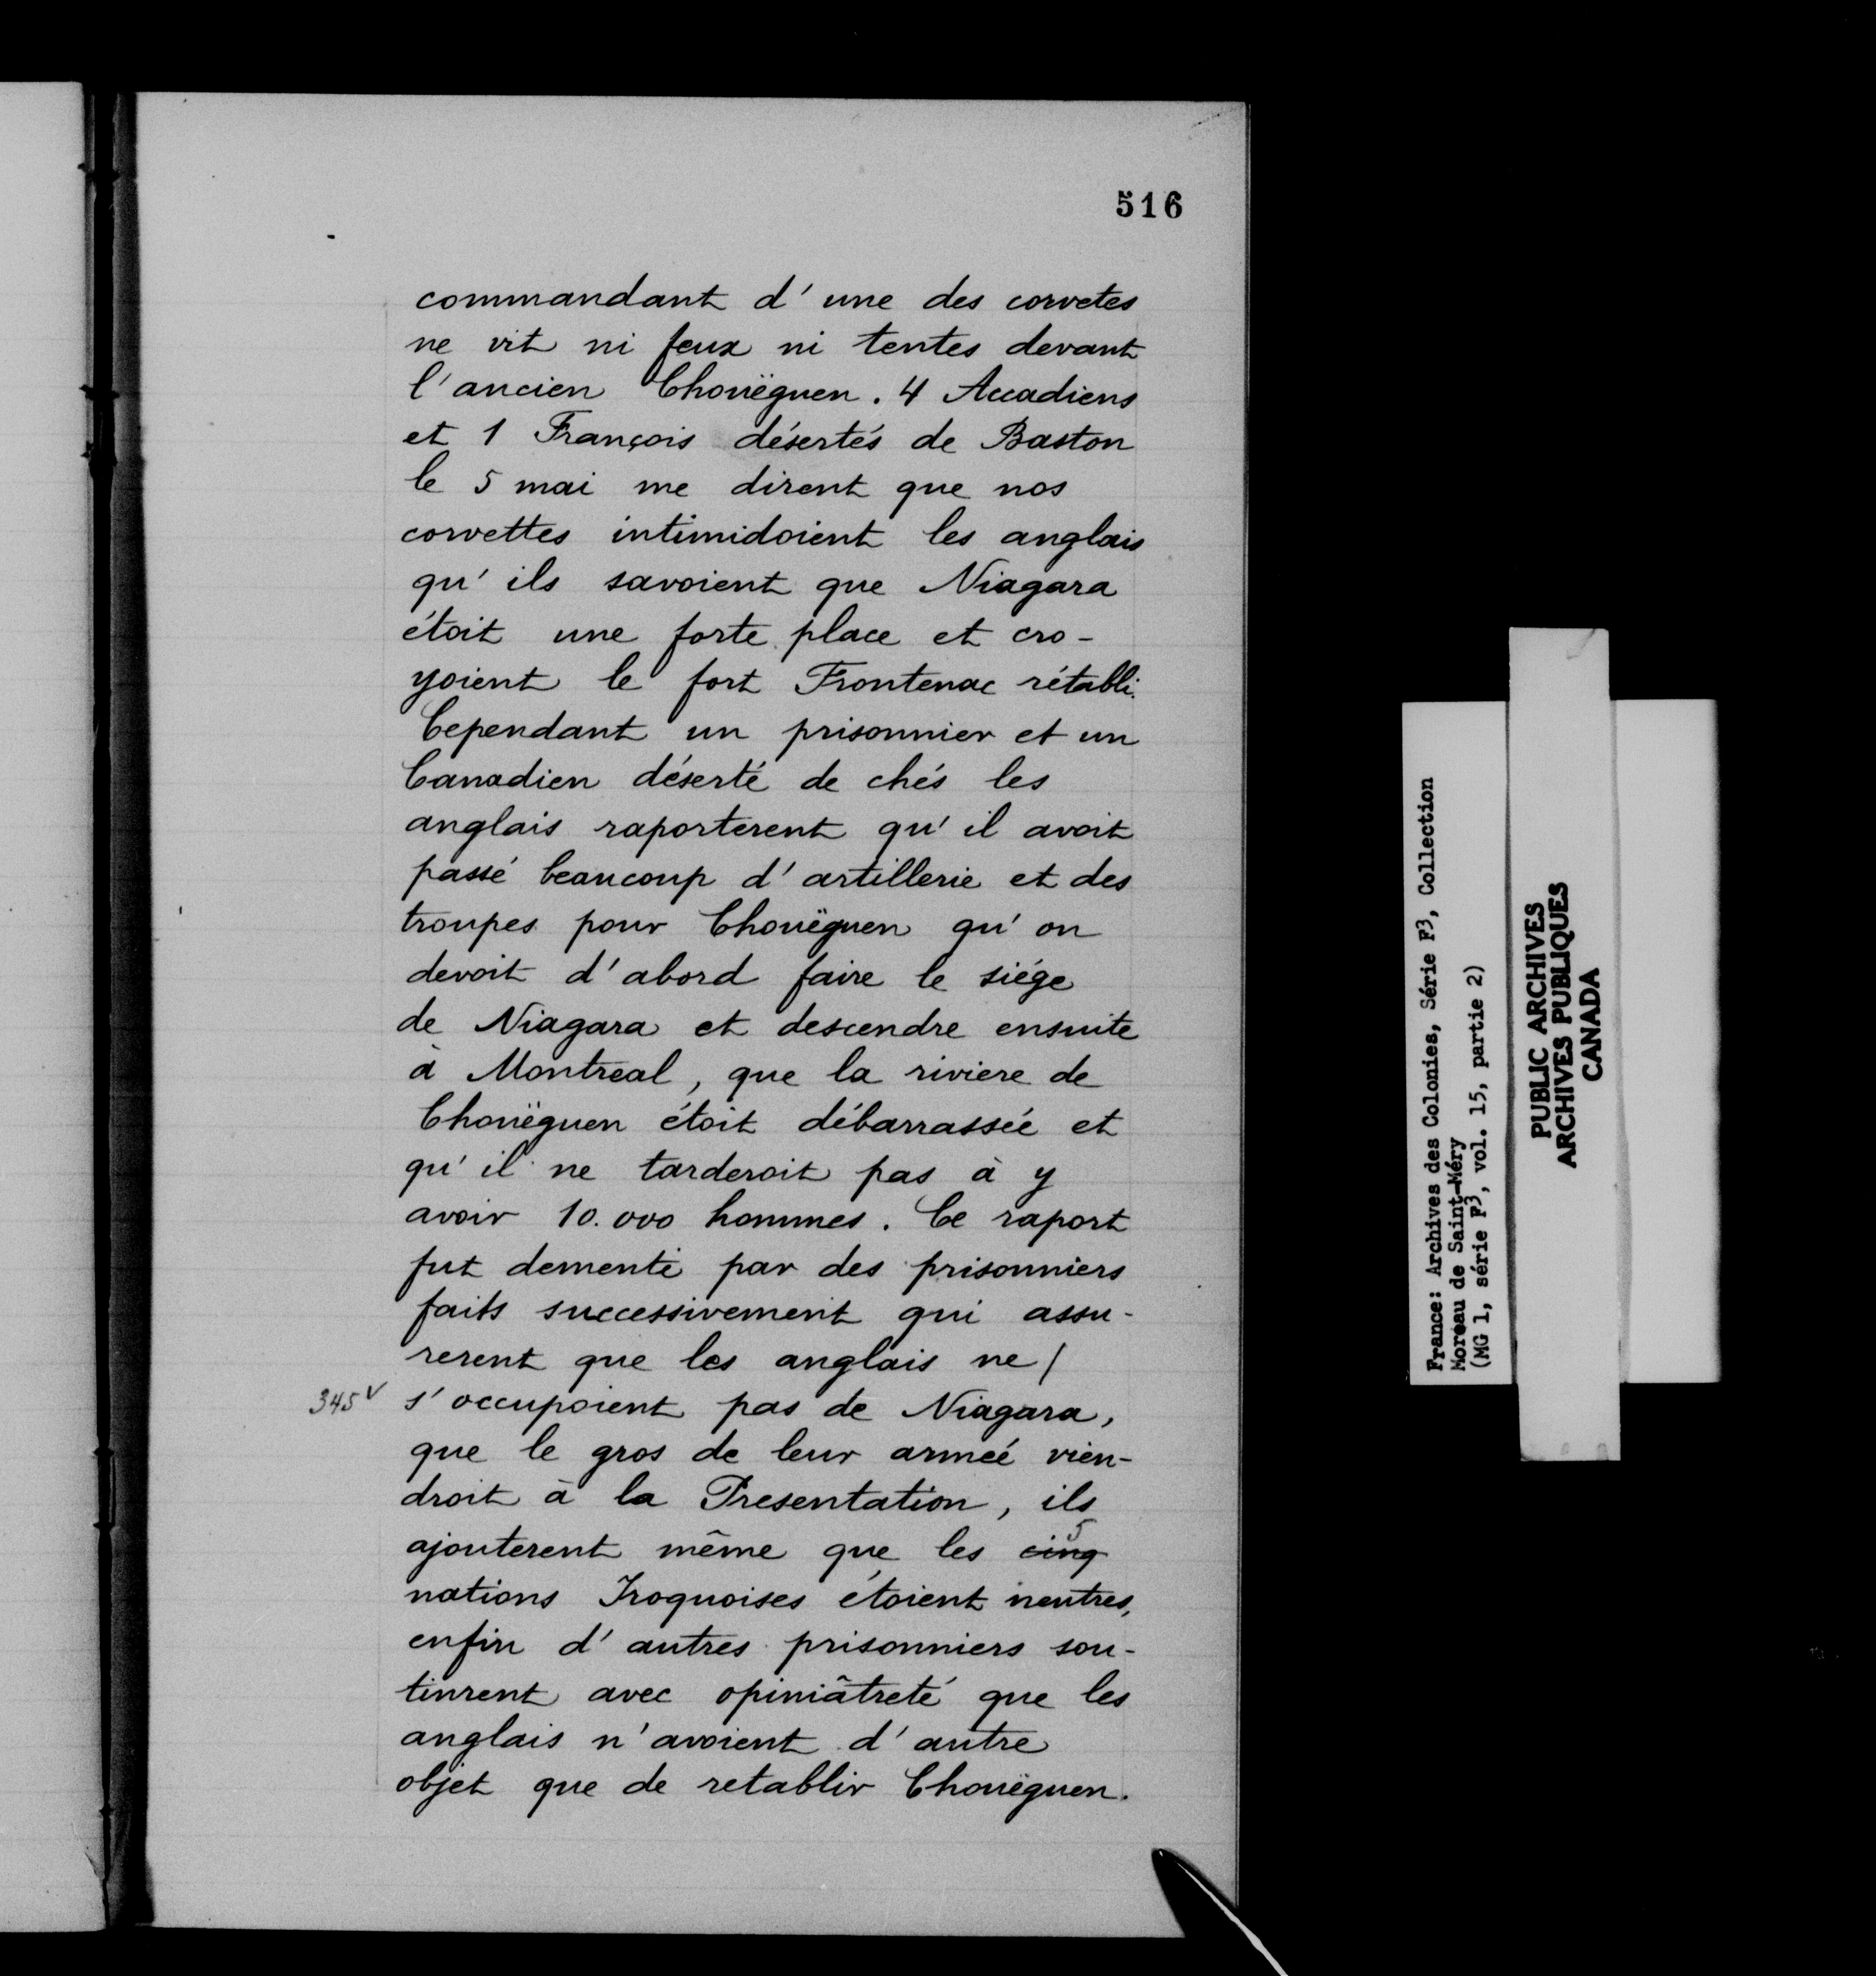 516
commandant d'une des corvetes
ne vit ni feux ni tentes devant
l'ancien Chouëguen. 4 Accadiens
et 1 François désertés de Baston
le 5 mai me dirent que nos
corvettes intimidoient les anglais
qu'ils savoient que Niagara
étoit une forte place et cro-
yoient le fort Frontenac rétabli.
Cependant un prisonnier et un
Canadien déserté de chés les
anglais raporterent qu'il avoit
passé beaucoup d'artillerie et des
troupes pour Chouëguen qu'on
devoit d'abord faire le siége
de Niagara et descendre ensuite
à Montreal, que la riviere de
Chouëguen étoit débarrassée et
qu'il ne tarderoit pas à y
avoir 10.000 hommes. Ce raport
fut dementi par des prisonniers
faits successivement qui assu-
rerent que les anglais ne /
345v s'occupoient pas de Niagara,
que le gros de leur armeé vien-
droit à la Presentation, ils
ajouterent même que les cinq 5
nations Iroquoises étoient neutres,
enfin d'autres prisonniers sou-
tinrent avec opiniâtreté que les
anglais n'avoient d'autre
objet que de retablir Chouëguen.
France: Archives des Colonies, Série F3, Collection
Moreau de Saint-Méry
(MG 1, série F3, vol. 15, partie 2)
PUBLIC ARCHIVES
ARCHIVES PUBLIQUES
CANADA